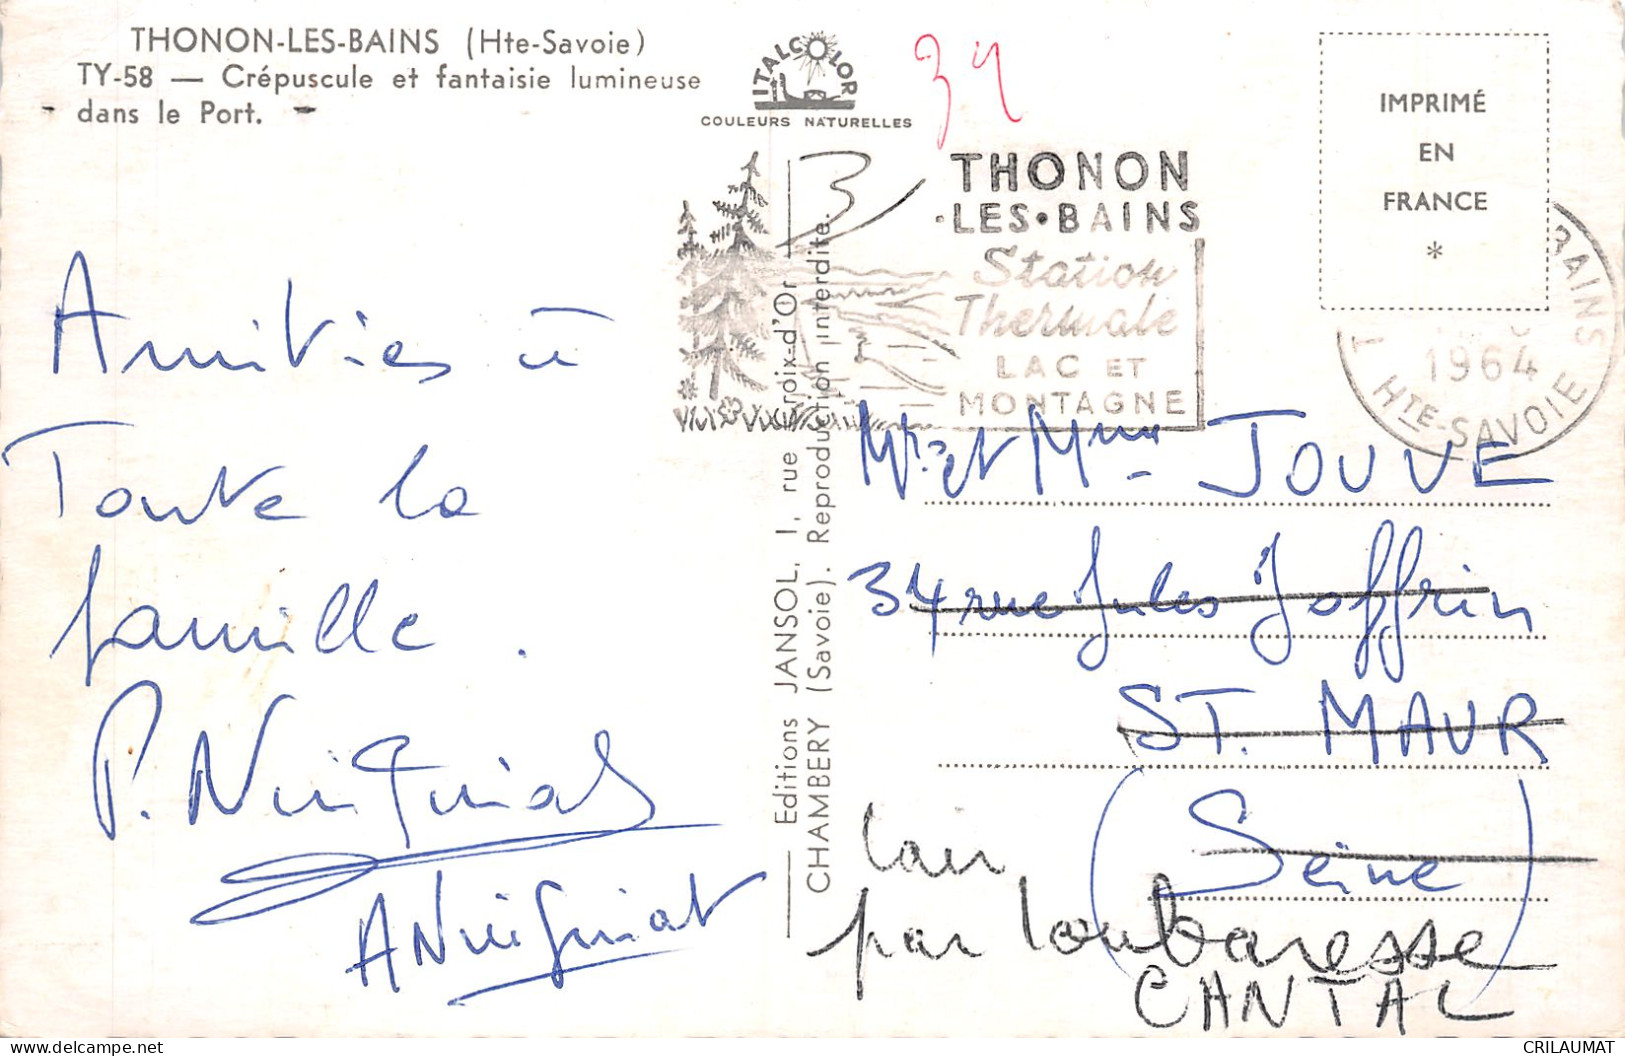 THONON-LES-BAINS (Hte-Savoie)
TY-58 — Crépuscule et fantaisie lumineuse
dans le Port.
ITALCOLOR
COULEURS NATURELLES
34
IMPRIMÉ
EN
FRANCE
*
THONON
·LES·BAINS
Station
Thermale
LAC ET
MONTAGNE
BAINS
1964
HTE-SAVOIE
Amitiés à
Toute la
famille.
Editions JANSOL, 1, rue Croix-d'Or
CHAMBERY (Savoie). Reproduction interdite.
Mr et Mme JOUVE
34 rue Jules Joffrin
ST. MAUR
(Seine)
par Loubaresse
CANTAL
CRILAUMAT